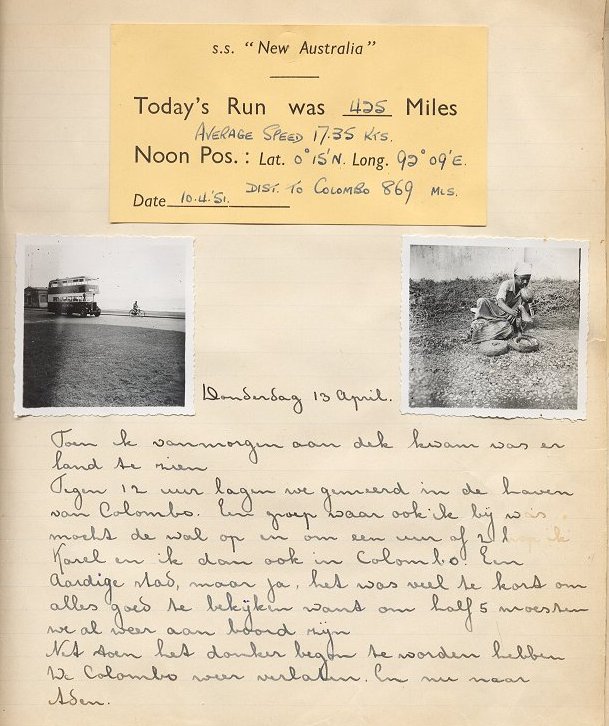 s.s. "New Australia"
Today's Run was 425 Miles
AVERAGE SPEED 17.35 KTS.
Noon Pos.: Lat. 0°15'N. Long. 92°09'E.
DIST. TO COLOMBO 869 MLS.
Date 10.4.'51.
Donderdag 13 April.
Toen ik vanmorgen aan dek kwam was er
land te zien
Tegen 12 uur lagen we gemeerd in de haven
van Colombo. Een groep waar ook ik bij was
mocht de wal op en om een uur of 2 l
Karel en ik dan ook in Colombo. Een
aardige stad, maar ja, het was veel te kort om
alles goed te bekijken want om half 5 moesten
we al weer aan boord zijn
Net toen het donker begon te worden hebben
We Colombo weer verlaten. En nu naar
Aden.